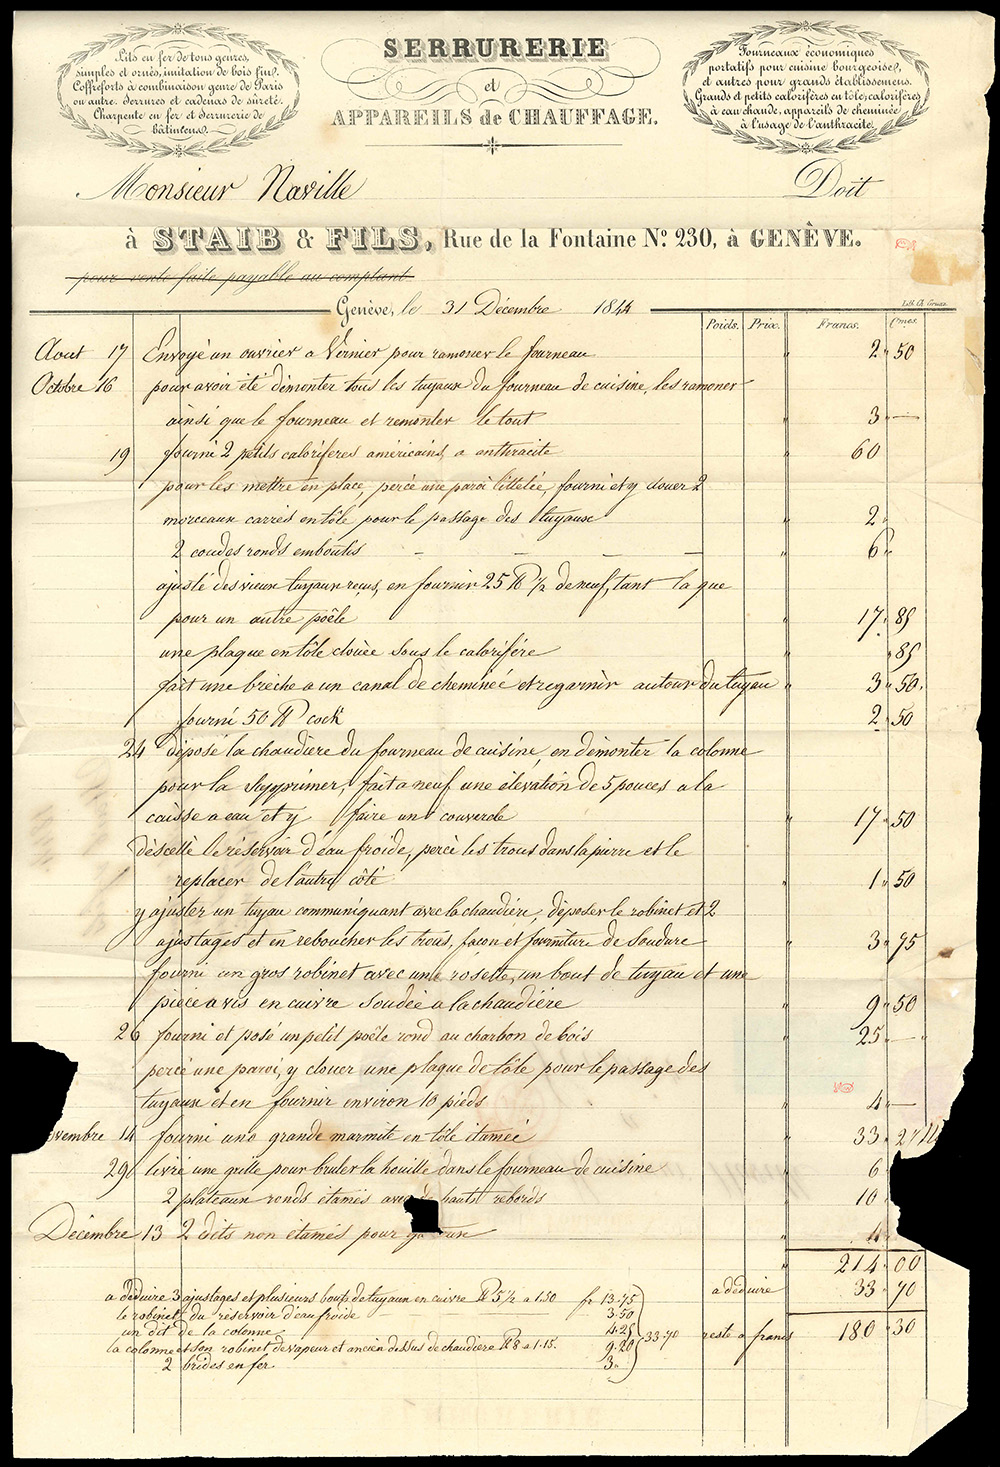 Lits en fer de tous genres,
simples et ornés, imitation de bois fins.
Coffreforts à combinaison genre de Paris
ou autre. Serrures et cadenas de sûreté.
Charpente en fer et Serrurerie de
bâtimens.
SERRURERIE
et
APPAREILS de CHAUFFAGE.
Fourneaux économiques
portatifs pour cuisine bourgeoise,
et autres pour grands établissemens.
Grands et petits calorifères en tôle, calorifères
à eau chaude, appareils de cheminée
à l'usage de l'anthracite.
Monsieur Naville Doit
à STAIB & FILS, Rue de la Fontaine No. 230, à GENÈVE.
pour vente faite payable au comptant
Lith. Ch. Gruaz
Genève, le 31 Décembre 1844
Poids. Prix. Francs. Cmes.
Aout 17 Envoyé un ouvrier a Vernier pour ramoner le fourneau 2 " 50
Octobre 16 pour avoir été démonter tous les tuyaux du fourneau de cuisine, les ramoner
ainsi que le fourneau et remonter le tout 3 " —
19 fourni 2 petits caloriferes américains, a anthracite 60
pour les mettre en place, percé une paroi littelée, fourni et y clouer 2
morceaux carrés en tôle pour le passage des tuyaux 2 "
2 coudes ronds emboutis — — — — 6 "
ajusté des vieux tuyaux reçus, en fournir 25 ℔ 1/2 de neuf, tant la que
pour un autre poêle 17 " 85
une plaque en tôle clouée sous le calorifére " 85
fait une brêche a un canal de cheminée et regarnir autour du tuyau 3 " 50
fourni 50 ℔ cock 2 " 50
24 déposé la chaudiere du fourneau de cuisine, en démonter la colonne
pour la supprimer, fait a neuf une élévation de 5 pouces a la
caisse a eau et y faire un couvercle 17 " 50
déscellé le réservoir d'eau froide, percé les trous dans la pierre et le
replacer de l'autre côté 1 " 50
y ajuster un tuyau communiquant avec la chaudiére, déposer le robinet et 2
ajustages et en reboucher les trous, façon et fourniture de soudure 3 " 75
fourni un gros robinet avec une rosette, un bout de tuyau et une
piéce a vis en cuivre soudée a la chaudiére 9 " 50
26 fourni et posé un petit poêle rond au charbon de bois 25 " —
percé une paroi, y clouer une plaque de tôle pour le passage des
tuyaux et en fournir environ 10 pieds 4 " —
ovembre 14 fourni une grande marmite en tôle étamée 33 " 27 1/2
29 livré une grille pour bruler la houille dans le fourneau de cuisine 6
2 plateaux ronds étamés avec de hauts rebords 10
Décembre 13 2 dits non étamés pour 4
214 " 00
a déduire 33 " 70
reste a francs 180 " 30
a déduire 3 ajustages et plusieurs bouts de tuyaux en cuivre ℔ 5 1/2 a 1.50 fr 13.75
le robinet du réservoir d'eau froide 3.50
un dit de la colonne 4.25 33.70
la colonne et son robinet de vapeur et ancien dessus de chaudiere ℔ 8 a 1.15. 9.20
2 brides en fer 3 "